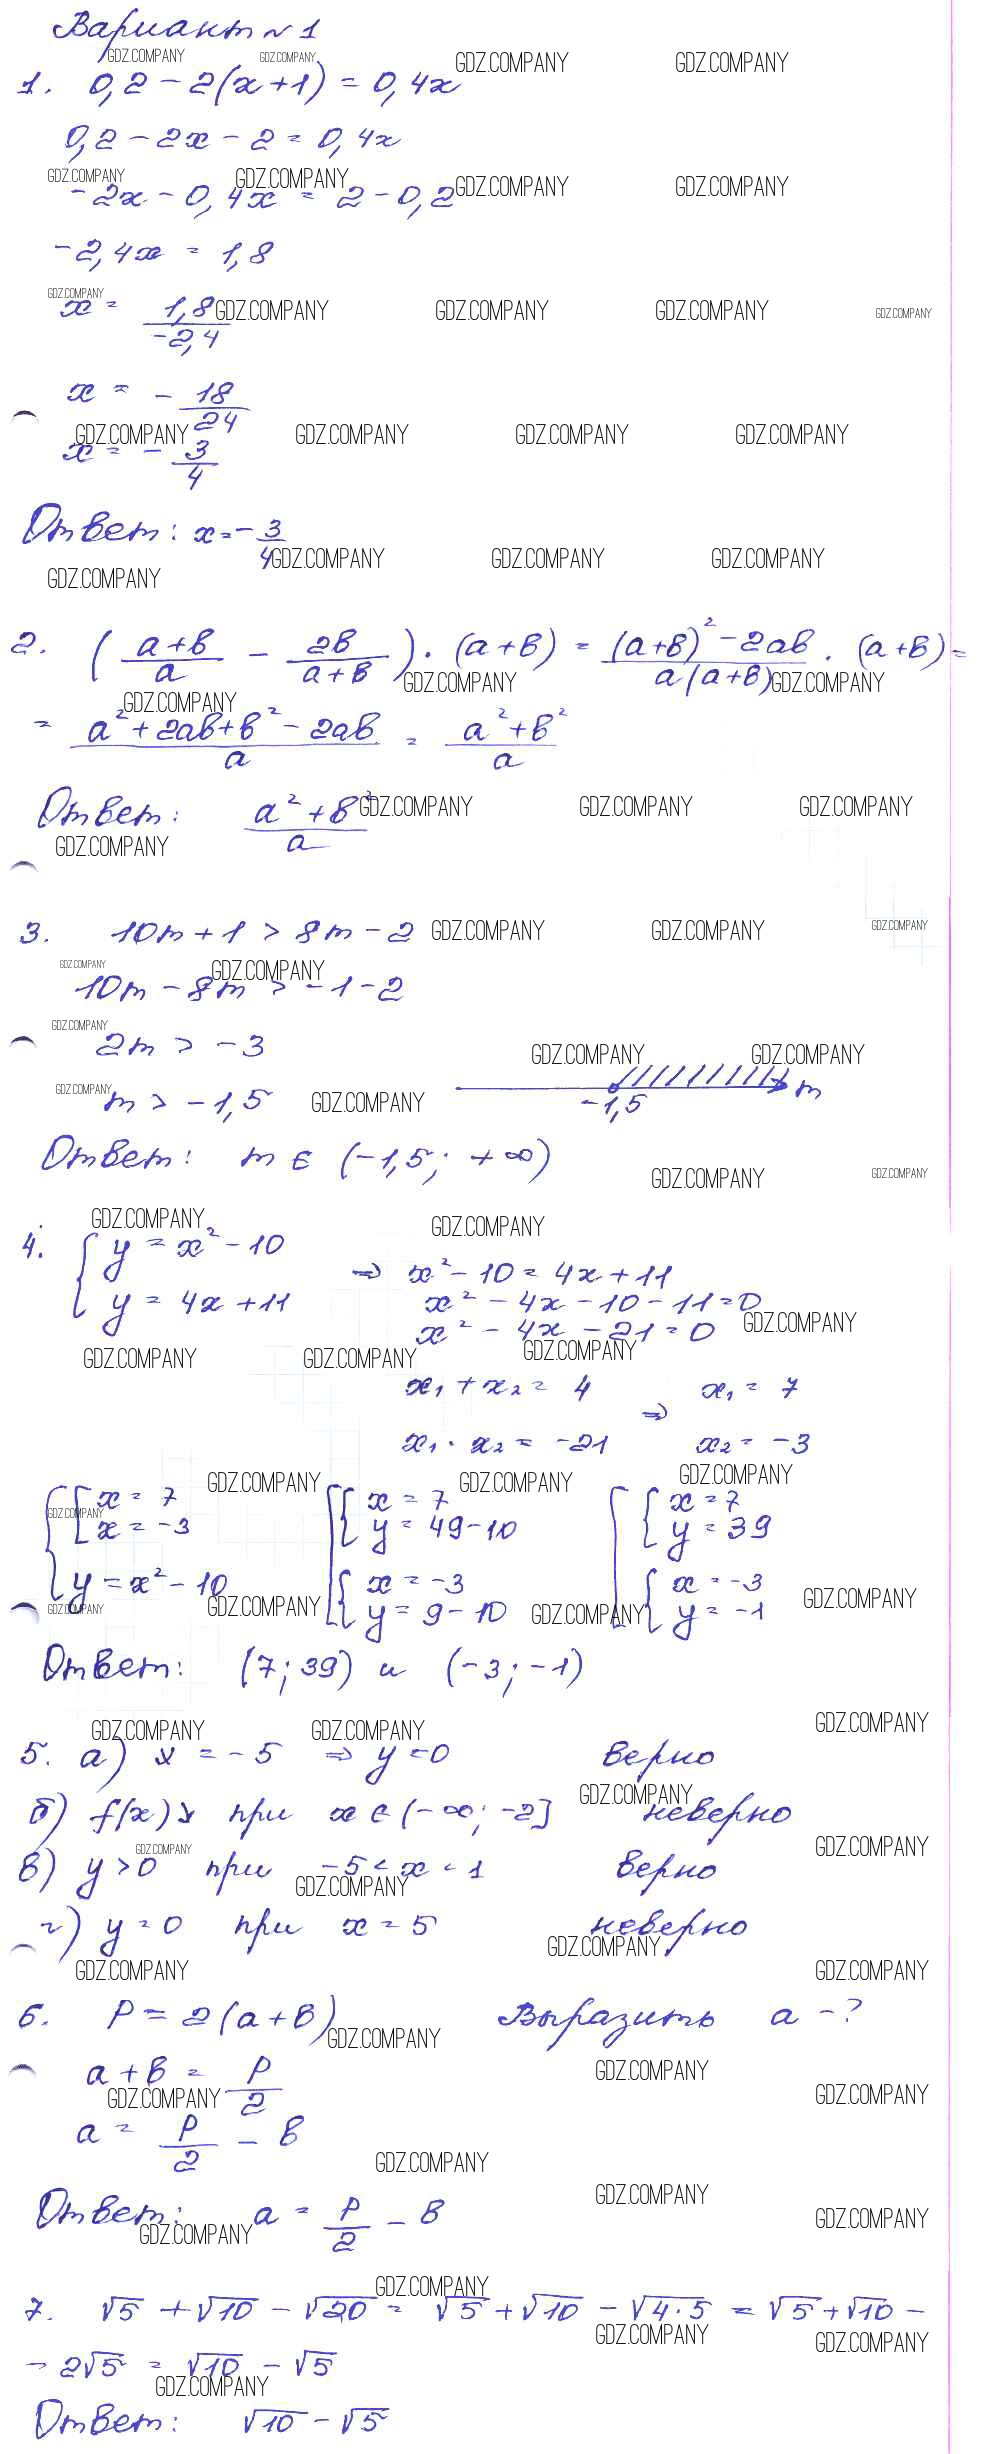 Вариант №1
1. 0,2 − 2(x+1) = 0,4x
0,2 − 2x − 2 = 0,4x
−2x − 0,4x = 2 − 0,2
−2,4x = 1,8
x = 1,8/−2,4
x = − 18/24
x = − 3/4
Ответ: x = − 3/4
2. ((a+b)/a − 2b/(a+b)) · (a+b) = ((a+b)² − 2ab)/(a(a+b)) · (a+b) =
= (a² + 2ab + b² − 2ab)/a = (a² + b²)/a
Ответ: (a² + b²)/a
3. 10m + 1 > 8m − 2
10m − 8m > −1 − 2
2m > −3
m > −1,5
−1,5 m
Ответ: m ∈ (−1,5; +∞)
4. { y = x² − 10
y = 4x + 11
⇒ x² − 10 = 4x + 11
x² − 4x − 10 − 11 = 0
x² − 4x − 21 = 0
x₁ + x₂ = 4 ⇒ x₁ = 7
x₁ · x₂ = −21 x₂ = −3
{ [ x = 7 [ { x = 7 [ { x = 7
x = −3 y = 49 − 10 y = 39
y = x² − 10 { x = −3 { x = −3
y = 9 − 10 y = −1
Ответ: (7; 39) и (−3; −1)
5. а) x = −5 ⇒ y = 0 верно
б) f(x)↘ при x ∈ (−∞; −2] неверно
в) y > 0 при −5 < x < 1 верно
г) y = 0 при x = 5 неверно
6. P = 2(a+b) Выразить a − ?
a + b = P/2
a = P/2 − b
Ответ: a = P/2 − b
7. √5 + √10 − √20 = √5 + √10 − √4·5 = √5 + √10 −
− 2√5 = √10 − √5
Ответ: √10 − √5
GDZ.COMPANY